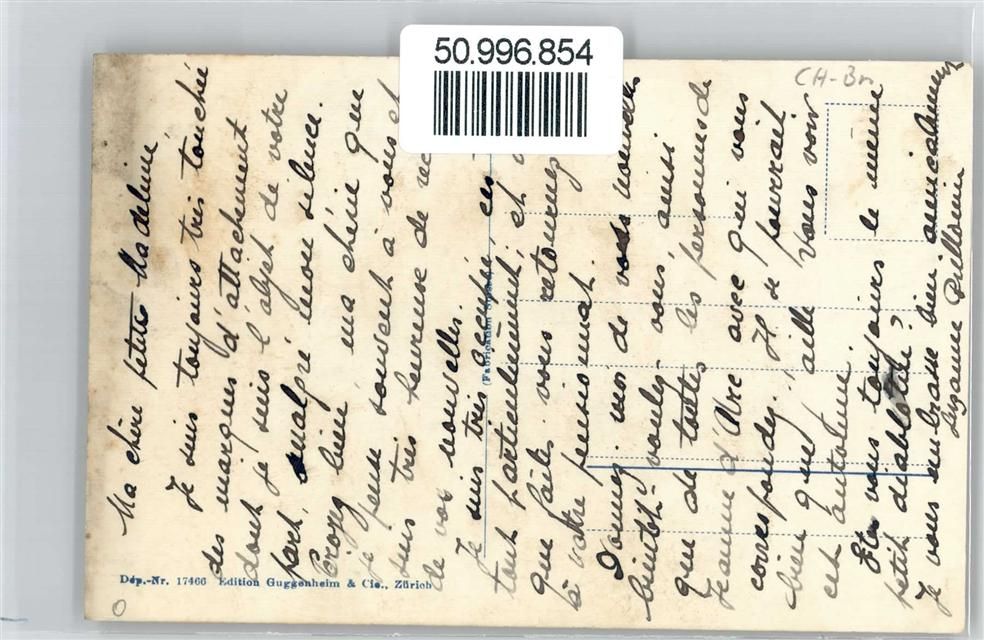 50.996.854
CH-Bn
Ma chère petite Madeleine
Je suis toujours très touchée
des marques d'attachement
dont je suis l'objet de votre
part, malgré mon silence.
Croyez bien ma chérie que
je pense souvent à vous et
suis très heureuse de re
de vos nouvelles.
Je suis très occupée, ces
tout particulièrement, et
que faites vous retournez
à votre pensionnat.
Donnez moi de vos nouvelles
bientôt voulez-vous, ainsi
que de toutes les personnes de
Jeanne d'Arc avec qui vous
correspondez. Il se pourrait
bien que j'aille vous voir
cet automne.
Etes vous toujours le même
petit diablotin?
Je vous embrasse bien amicalement
Suzanne
(Fabrication Suisse)
Dép.-Nr. 17466 Edition Guggenheim & Cie., Zürich